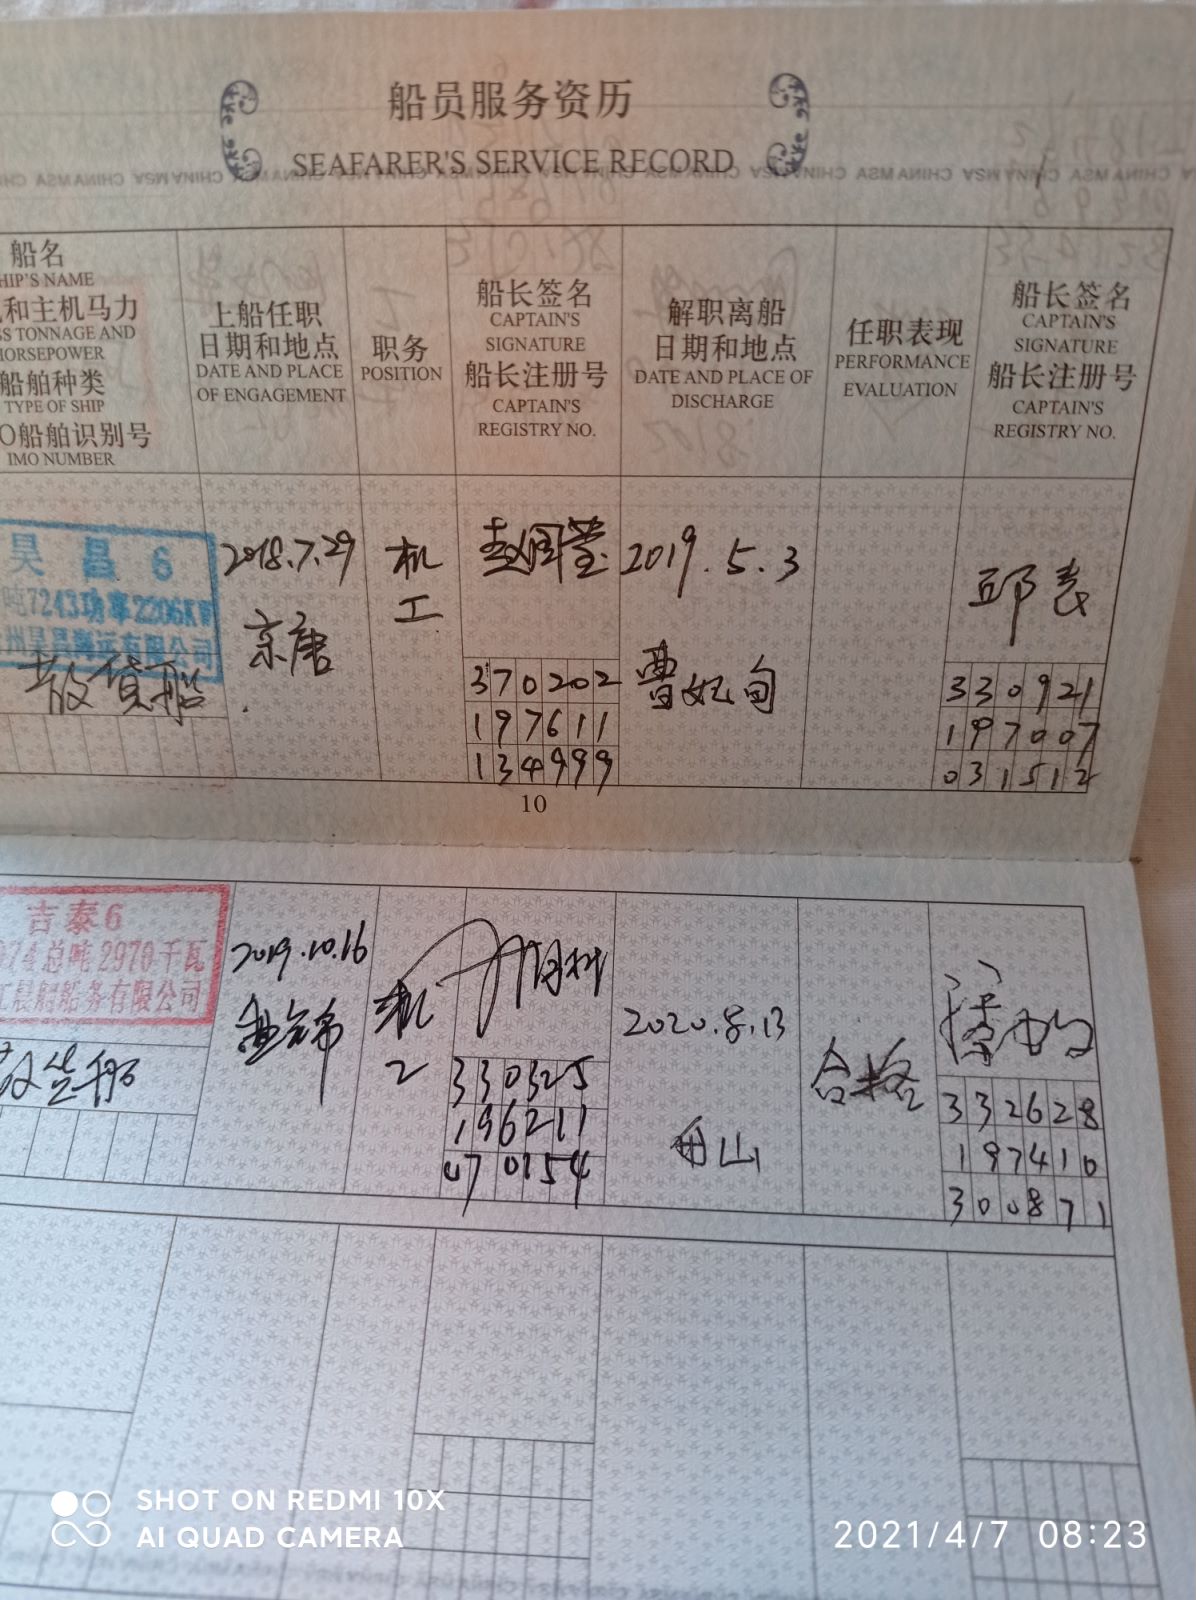 船员服务资历
SEAFARER'S SERVICE RECORD
船名
HIP'S NAME
和主机马力
SS TONNAGE AND
HORSEPOWER
船舶种类
TYPE OF SHIP
O船舶识别号
IMO NUMBER
上船任职
日期和地点
DATE AND PLACE
OF ENGAGEMENT
职务
POSITION
船长签名
CAPTAIN'S
SIGNATURE
船长注册号
CAPTAIN'S
REGISTRY NO.
解职离船
日期和地点
DATE AND PLACE OF
DISCHARGE
任职表现
PERFORMANCE
EVALUATION
船长签名
CAPTAIN'S
SIGNATURE
船长注册号
CAPTAIN'S
REGISTRY NO.
昊昌6
吨7243功率2206KW
州昊昌海运有限公司
散货船
2018.7.29
京唐
机
工
370202
197611
134999
2019.5.3
曹妃甸
330921
197007
031512
10
吉泰6
974总吨2970千瓦
船务有限公司
2019.10.16
330325
196211
070154
2020.8.13
舟山
合格
332628
197410
300871
SHOT ON REDMI 10X
AI QUAD CAMERA
2021/4/7 08:23